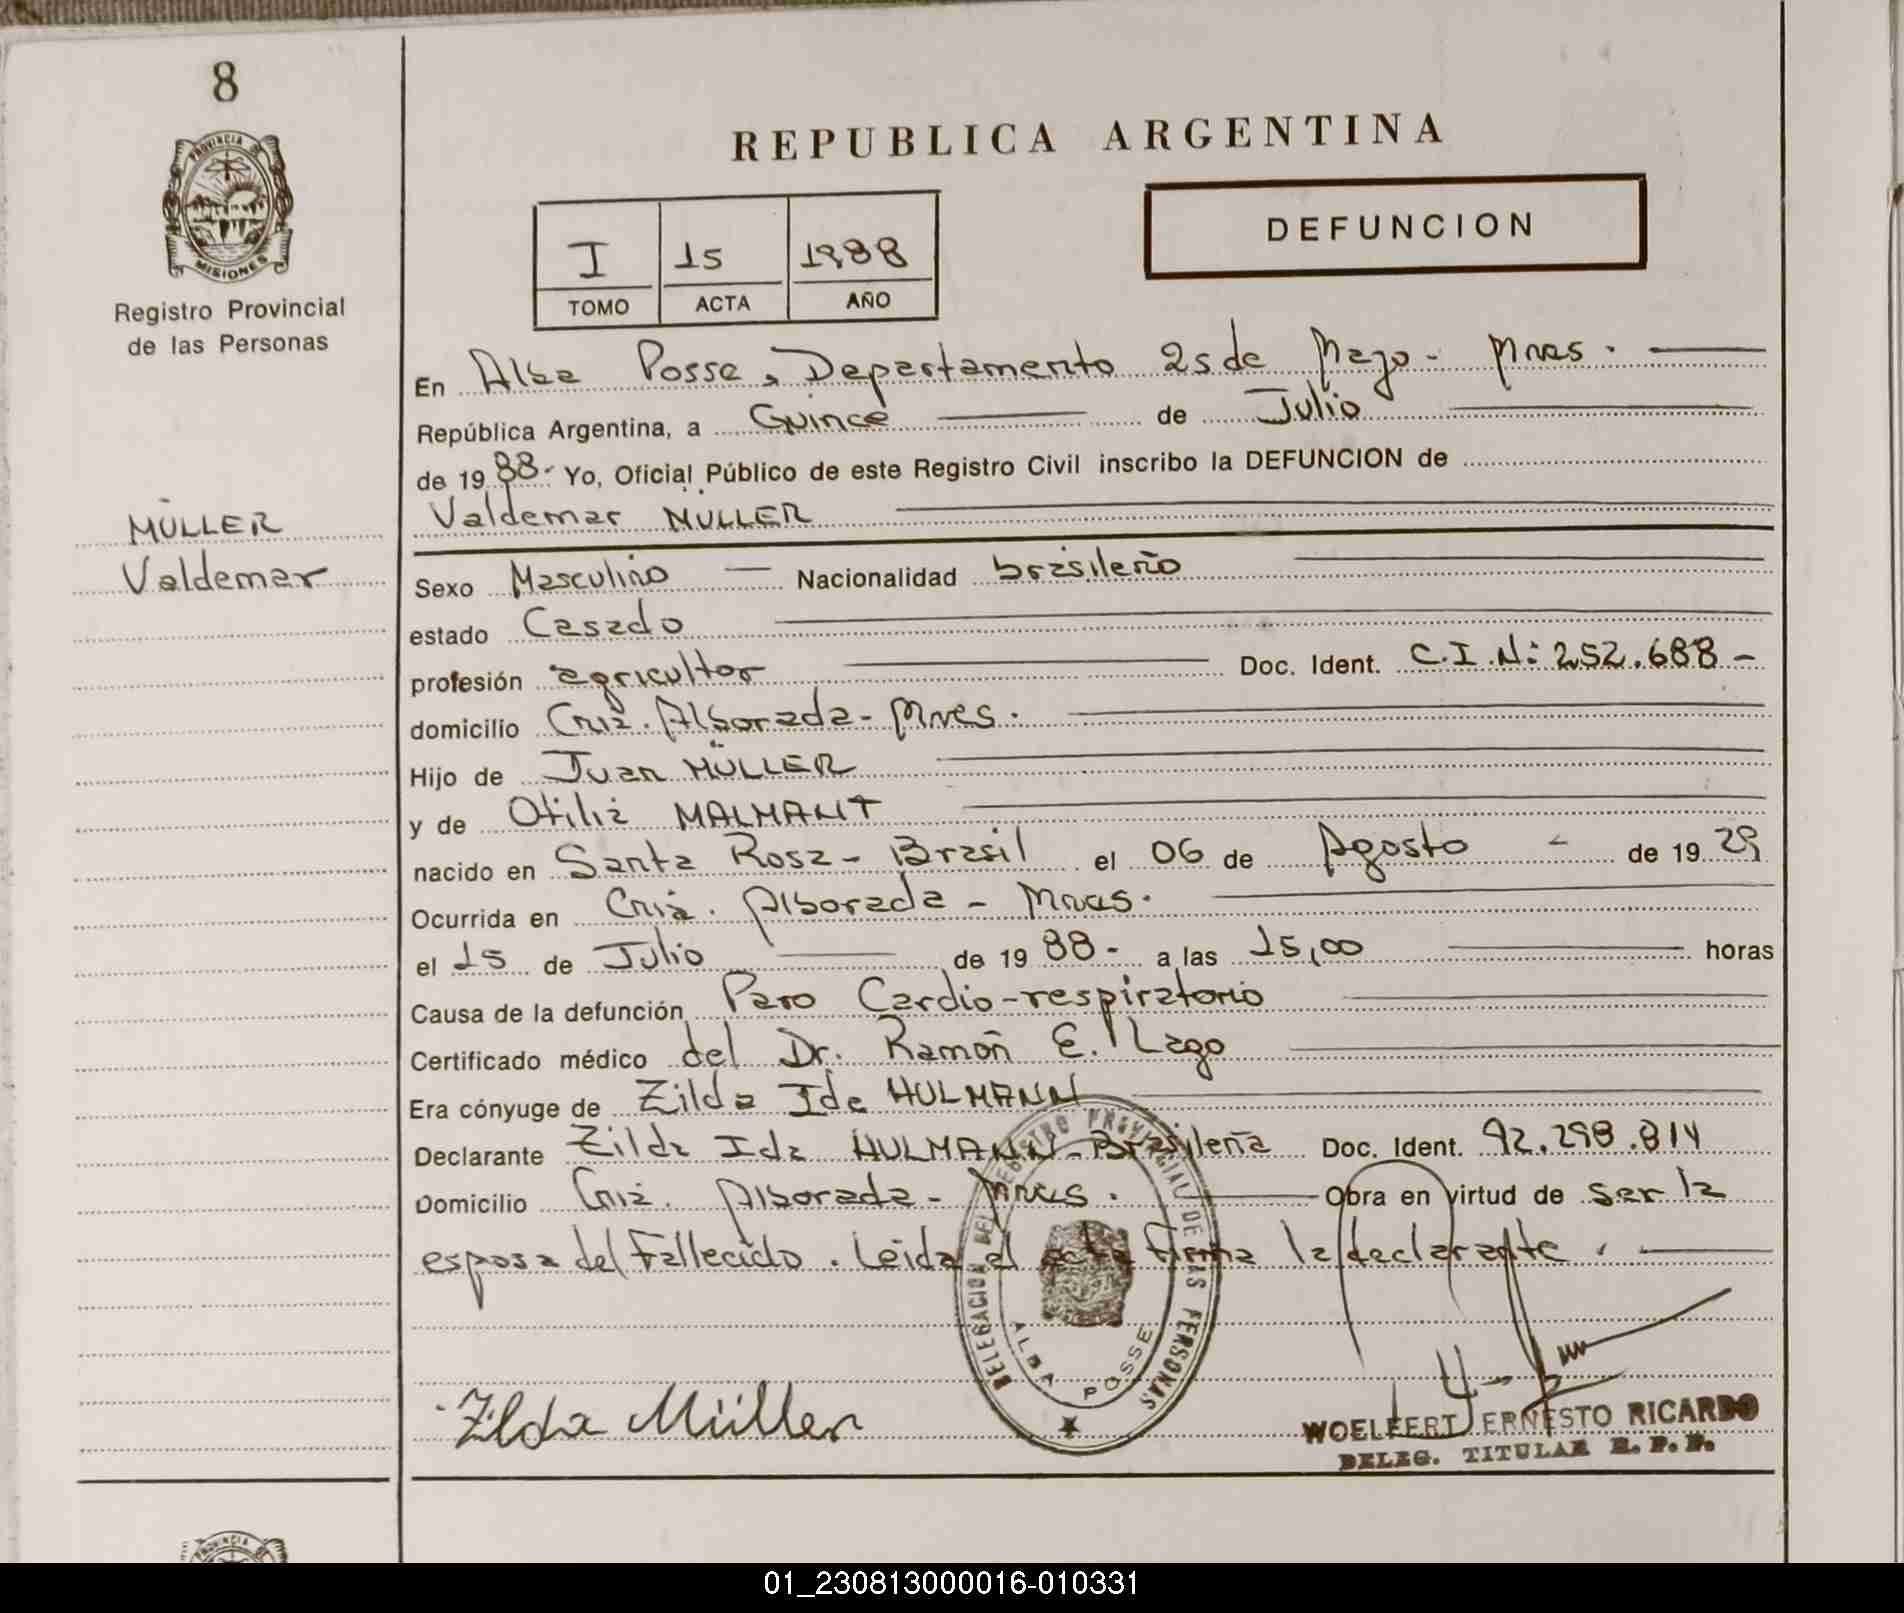 8
PROVINCIA DE
MISIONES
Registro Provincial
de las Personas
MÜLLER
Valdemar
REPUBLICA ARGENTINA
I 15 1988
TOMO ACTA AÑO
DEFUNCION
En Alba Posse, Departamento 25 de Mayo - Mnes.
República Argentina, a Quince de Julio
de 19 88.- Yo, Oficial Público de este Registro Civil inscribo la DEFUNCION de
Valdemar MÜLLER
Sexo Masculino Nacionalidad brasileño
estado Casado
profesión agricultor Doc. Ident. C.I.N: 252.688 -
domicilio Cnia. Alborada - Mnes.
Hijo de Juan MÜLLER
y de Otilia MALMANT
nacido en Santa Rosa - Brasil el 06 de Agosto - de 19 29
Ocurrida en Cnia. Alborada - Mnes.
el 15 de Julio de 19 88 - a las 15,00 horas
Causa de la defunción Paro Cardio-respiratorio
Certificado médico del Dr. Ramón E. Lago
Era cónyuge de Zilda Ida HULMANN
Declarante Zilda Ida HULMANN - Brasileña Doc. Ident. 92.298.814
Domicilio Cnia. Alborada - Mnes. Obra en virtud de ser la
esposa del fallecido. Leida el acta firma la declarante.
DELEGACION DEL REGISTRO PROVINCIAL DE LAS PERSONAS
ALBA POSSE
Zilda Müller
WOELFERT ERNESTO RICARDO
DELEG. TITULAR R. P. P.
PROVINCIA DE
01_230813000016-010331